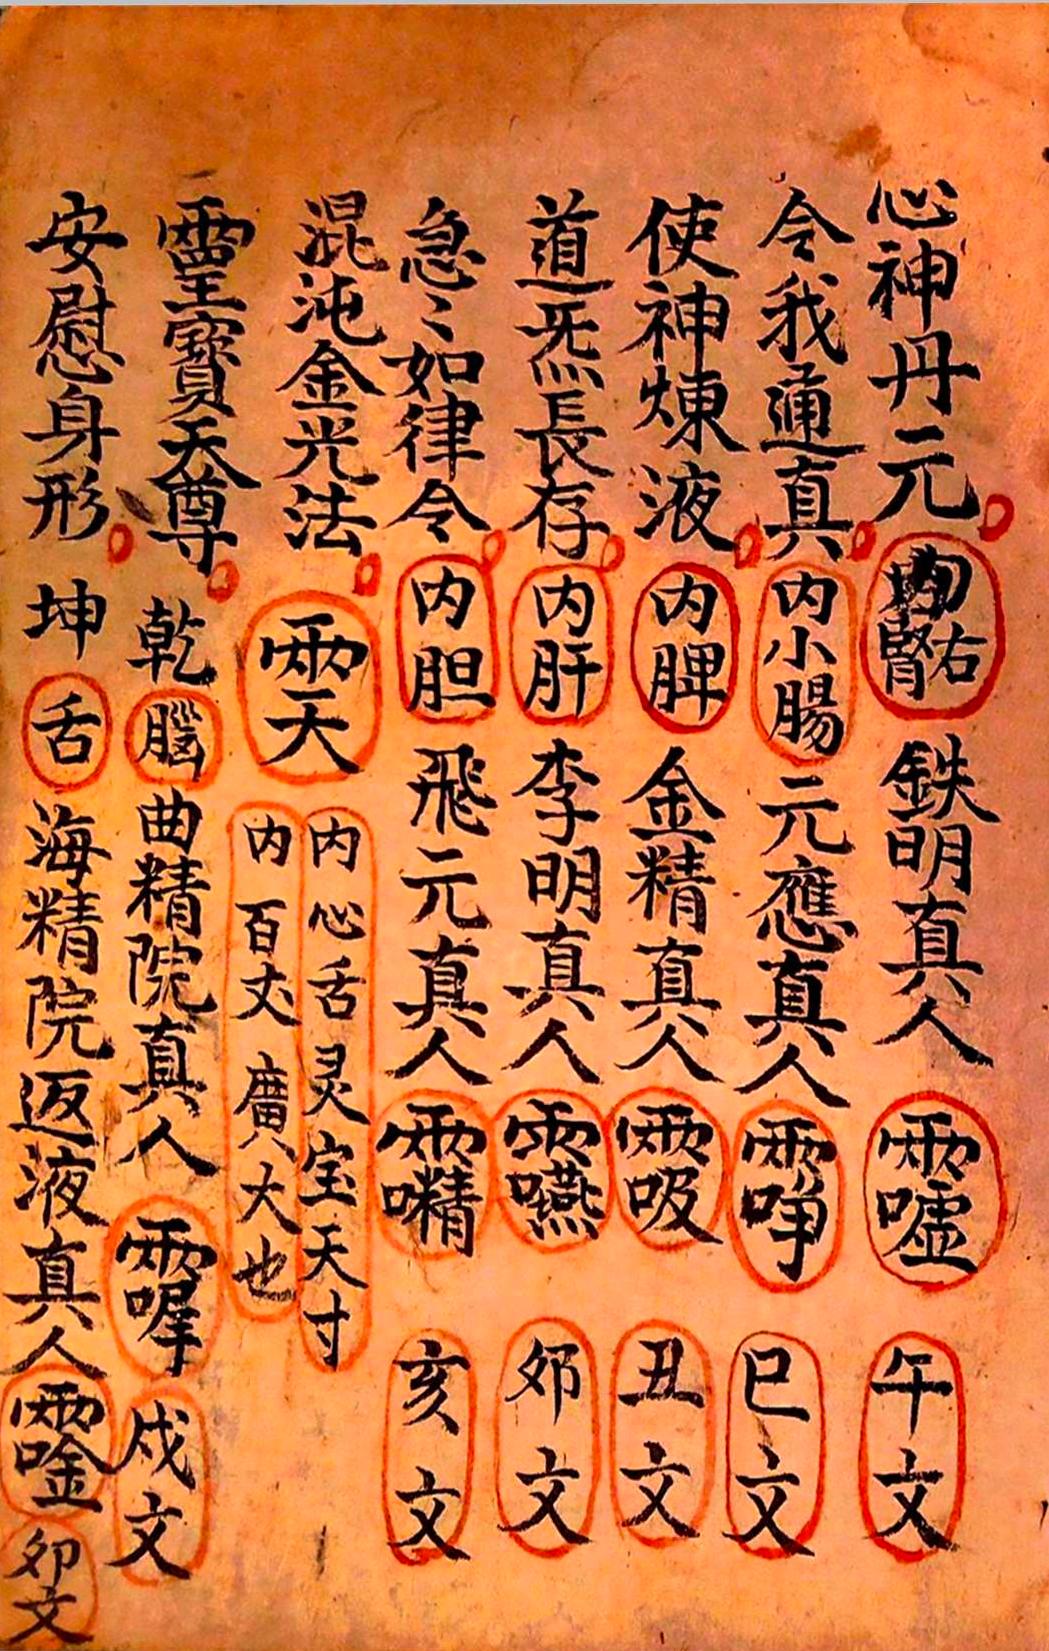 心神丹元 内右腎 鉄明真人 䨚噓 午文
令我通真 内小腸 元應真人 雨唥 巳文
使神煉液 内脾 金精真人 雨吸 丑文
道炁長存 内肝 李明真人 雨嚥 卯文
急〻如律令 内胆 飛元真人 雨𠽌 亥文
混沌金光法 雨天 内心舌灵宝天寸
内百丈廣大也
靈寶天尊 乾 腦 曲精院真人 戍文
安慰身形 坤 舌 海精院返液真人 雨唫 卯文